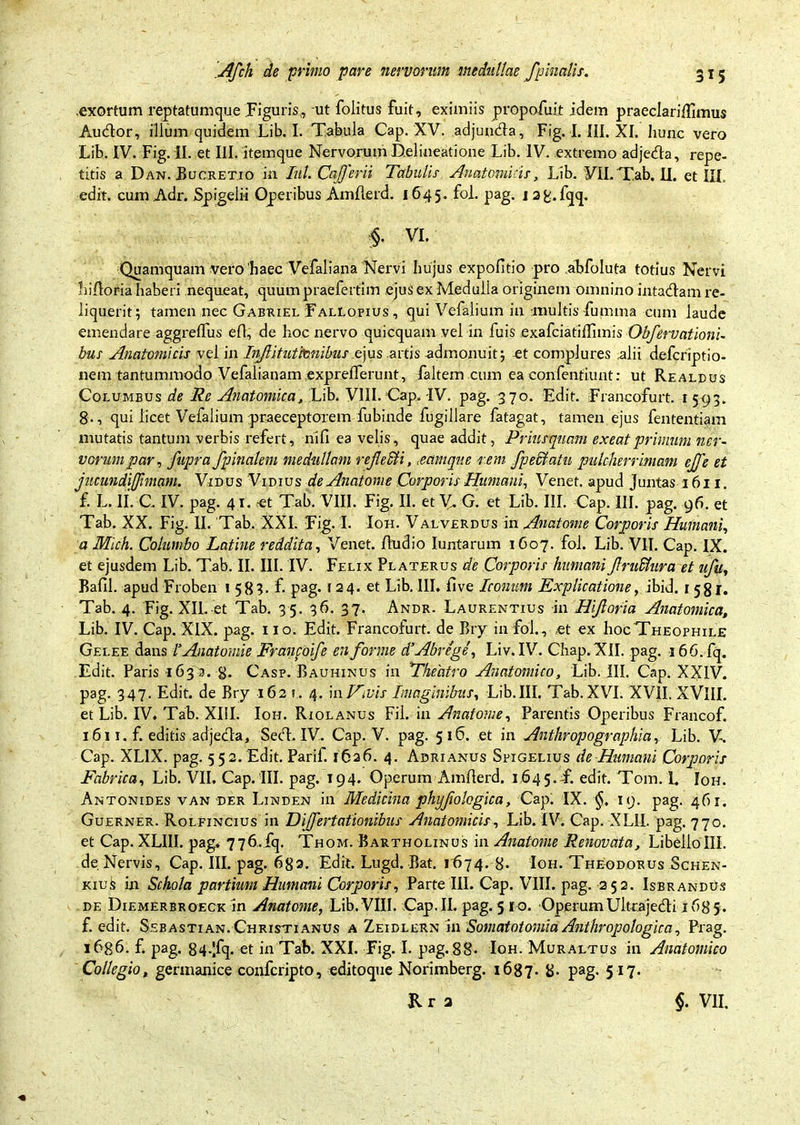 Asch de primo pare nervorum medullae spinalis. 315
exortum reptatumque Figuris, ut solitus fuit, eximiis proposuit idem praeclarissimus
Auctor, illum quidem Lib. I. Tabula Cap. XV. adjuncta, Fig. I. III. XI. hunc vero
Lib. IV. Fig. II. et III. itemque Nervorum Delineatione Lib. IV. extremo adjecta, repe-
titis a Dan. Bucretio in Iul. Casserii Tabulis Anatomicis, Lib. VII. Tab. II. et III.
edit. cum Adr. Spigelii Operibus Amsterd. 1645. fol. pag. 128. sqq.
§. VI.
Quamquam vero haec Vesaliana Nervi hujus expositio pro absoluta totius Nervi
historia haberi nequeat, quum praesertim ejus ex Medulla originem omnino intactam re-
liquerit; tamen nec Gabriel Fallopius, qui Vesalium in multis summa cum laude
emendare aggressus est, de hoc nervo quicquam vel in suis exasciatissimis Observationi-
bus Anatomicis vel in Institutionibus ejus artis admonuit; et complures alii descriptio-
nem tantummodo Vesalianam expresserunt, saltem cum ea consentiunt: ut Realdus
Columbus de Re Anatomica, Lib. VIII. Cap. IV. pag. 370. Edit. Francofurt. 1593.
8., qui licet Vesalium praeceptorem subinde sugillare satagat, tamen ejus sententiam
mutatis tantum verbis refert, nisi ea velis, quae addit, Priusquam exeat primum ner-
vorum par, supra spinalem medullam reflecti, eamque rem spectatu pulcherrimam esse et
jucundissimam. Vidus Vidius de Anatome Corporis Humani, Venet. apud Juntas 1611.
f. L. II. C. IV. pag. 41. et Tab. VIII. Fig. II. et V. G. et Lib. III. Cap. III. pag. 96. et
Tab. XX. Fig. II. Tab. XXI. Fig. I. Ioh. Valverdus in Anatome Corporis Humani,
a Mich. Columbo Latine reddita, Venet. studio Iuntarum 1607. fol. Lib. VII. Cap. IX.
et ejusdem Lib. Tab. II. III. IV. Felix Platerus de Corporis humani structura et usu,
Basil. apud Froben 1583. f. pag. 124. et Lib. III. sive Iconum Explicatione, ibid. 1581.
Tab. 4. Fig. XII. et Tab. 35. 36. 37. Andr. Laurentius in Historia Anatomica,
Lib. IV. Cap. XIX. pag. 110. Edit. Francofurt. de Bry in fol., et ex hoc Theophile
Gelee dans l'Anatomie Françoise en forme d'Abregé, Liv. IV. Chap. XII. pag. 166. sq.
Edit. Paris 1632. 8. Casp. Bauhinus in Theatro Anatomico, Lib. III. Cap. XXIV.
pag. 347. Edit. de Bry 1621. 4. in Vivis Imaginibus, Lib. III. Tab. XVI. XVII. XVIII.
et Lib. IV. Tab. XIII. Ioh. Riolanus Fil. in Anatome, Parentis Operibus Francof.
1611. f. editis adjecta, Sect. IV. Cap. V. pag. 516. et in Anthropographia, Lib. V.
Cap. XLIX. pag. 552. Edit. Paris. 1626. 4. Adrianus Spigelius de Humani Corporis
Fabrica, Lib. VII. Cap. III. pag. 194. Operum Amsterd. 1645. f. edit. Tom. I. Ioh.
Antonides van der Linden in Medicina physiologica, Cap. IX. §. 19. pag. 461.
Guerner. Rolfincius in Dissertationibus Anatomicis, Lib. IV. Cap. XLII. pag. 770.
et Cap. XLIII. pag. 776. sq. Thom. Bartholinus in Anatome Renovata, Libello III.
de Nervis, Cap. III. pag. 682. Edit. Lugd. Bat. 1674. 8. Ioh. Theodorus Schen-
kius in Schola partium Humani Corporis, Parte III. Cap. VIII. pag. 252. Isbrandus
de Diemerbroeck in Anatome, Lib. VIII. Cap. II. pag. 510. Operum Ultrajecti 1685.
f. edit. Sebastian. Christianus a Zeidlern in Somatotomia Anthropologica, Prag.
1686. f. pag. 84. sq. et in Tab. XXI. Fig. I. pag. 88. Ioh. Muraltus in Anatomico
Collegio, germanice conscripto, editoque Norimberg. 1687. 8. pag. 517.
Rr 2 §. VII.